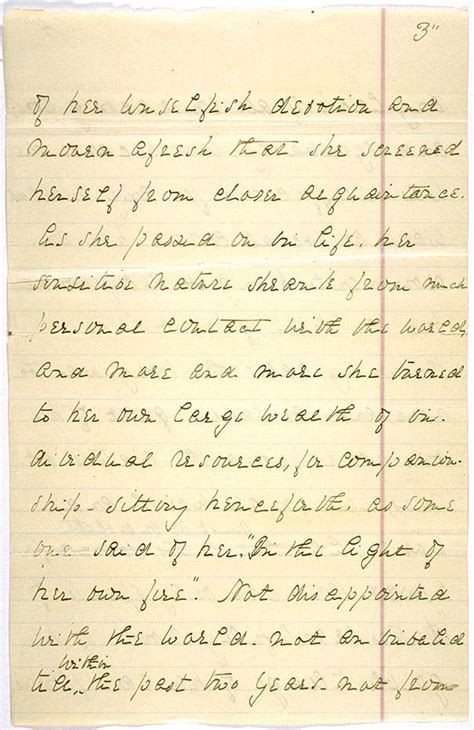 3"
of her unselfish devotion and
mourn afresh that she screened
herself from closer acquaintance.
As she passed on in life, her
sensitive nature shrank from much
personal contact with the world,
and more and more she turned
to her own large wealth of in-
dividual resources, for companion-
ship sitting henceforth, as some
one said of her, "In the light of
her own fire". Not disappointed
with the world. not an invalid
within
till, the past two years. not from